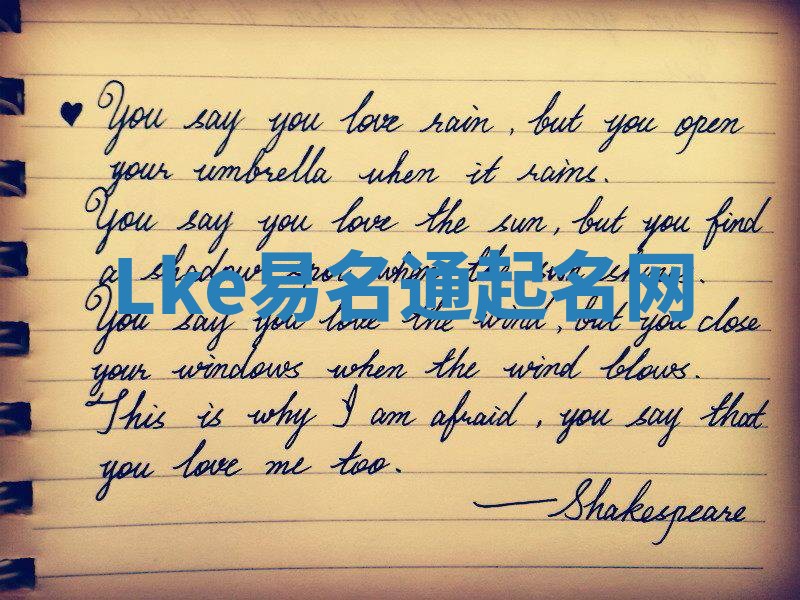 ♥ You say you love rain, but you open
your umbrella when it rains.
You say you love the sun, but you find
a shadow spot when the sun shines.
Lke易名通起名网
You say you love the wind, but you close
your windows when the wind blows.
This is why I am afraid, you say that
you love me too.
—Shakespeare